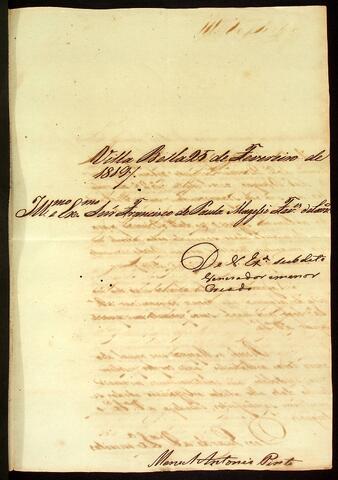 Villa Bella 25 de Fevereiro de
1819,,
Illmo e Exmo Snr Francisco de Paula Magessi Tavs
De V. Exa subdito
Venerador e menor
Creado
Manuel Antonio Pinto